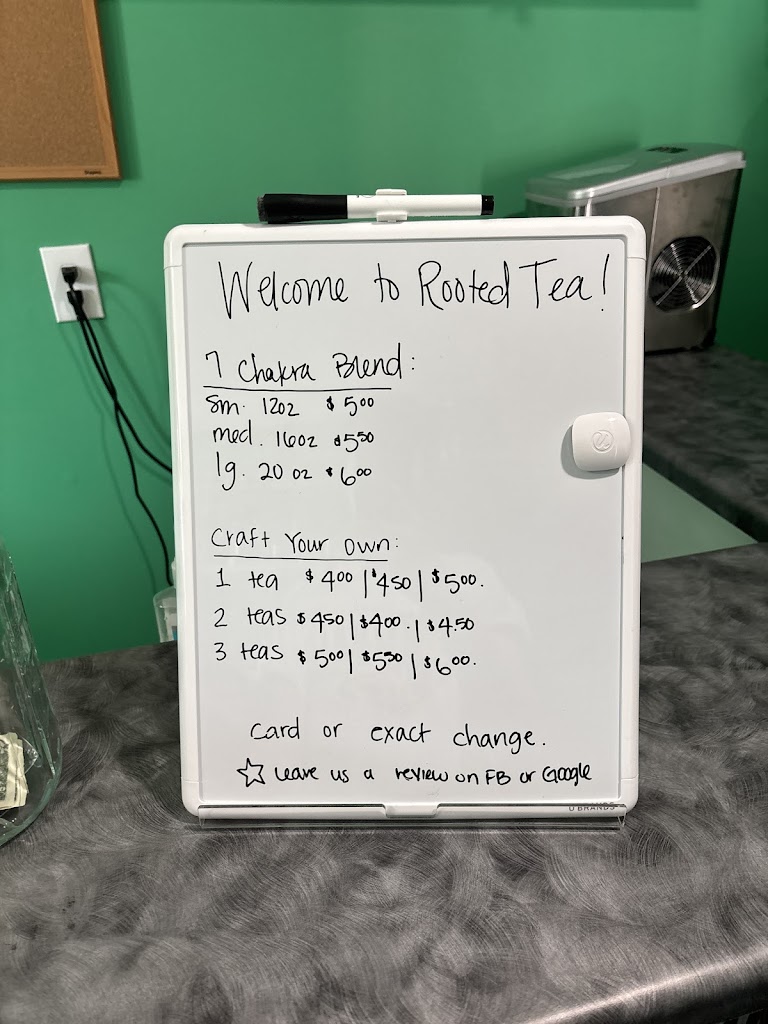 Welcome to Rooted Tea!
7 Chakra Blend:
sm. 12oz $5.00
med. 16oz $5.50
lg. 20 oz $6.00
Craft Your Own:
1 tea $4.00 | $4.50 | $5.00.
2 teas $4.50 | $4.00. | $4.50
3 teas $5.00 | $5.50 | $6.00.
card or exact change.
☆ Leave us a review on FB or Google
U BRANDS